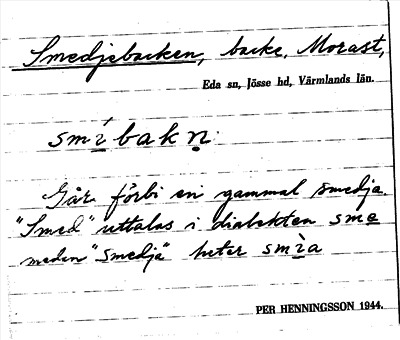 Smedjebacken, backe, Morast,
Eda sn, Jösse hd, Värmlands län.
smí̱bakn̥
Går förbi en gammal smedja.
"Smed" uttalas i dialekten sme
medan "smedja" heter smì̱a
PER HENNINGSSON 1944.